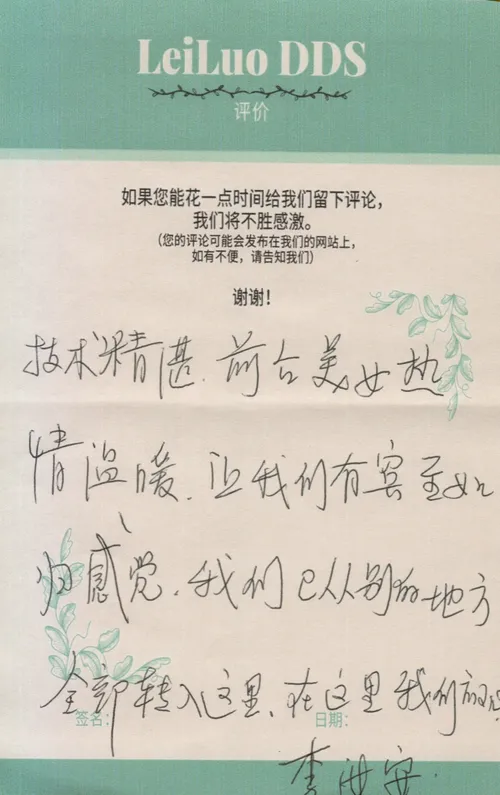 LeiLuo DDS
评价
如果您能花一点时间给我们留下评论，
我们将不胜感激。
(您的评论可能会发布在我们的网站上，
如有不便，请告知我们)
谢谢！
技术精湛、前台美女热
情温暖、让我们有宾至如
归感觉、我们已从别的地方
全部转入这里、在这里我们放心
签名： 日期：
李